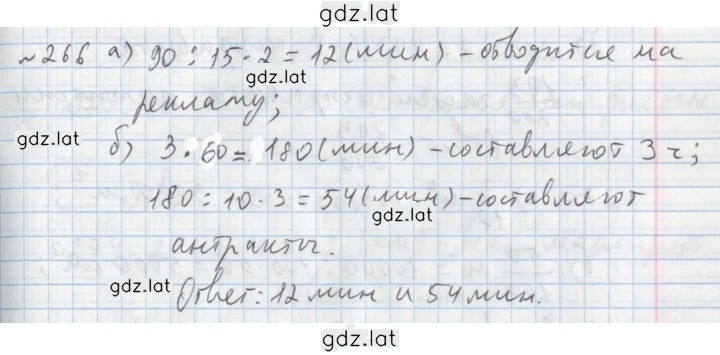 gdz.lat
№266 а) 90 : 15 · 2 = 12 (мин) – отводится на
gdz.lat
рекламу;
gdz.lat
б) 3 · 60 = 180 (мин) – составляют 3 ч;
180 : 10 · 3 = 54 (мин) – составляют
gdz.lat
антракты.
gdz.lat
Ответ: 12 мин и 54 мин.
gdz.lat